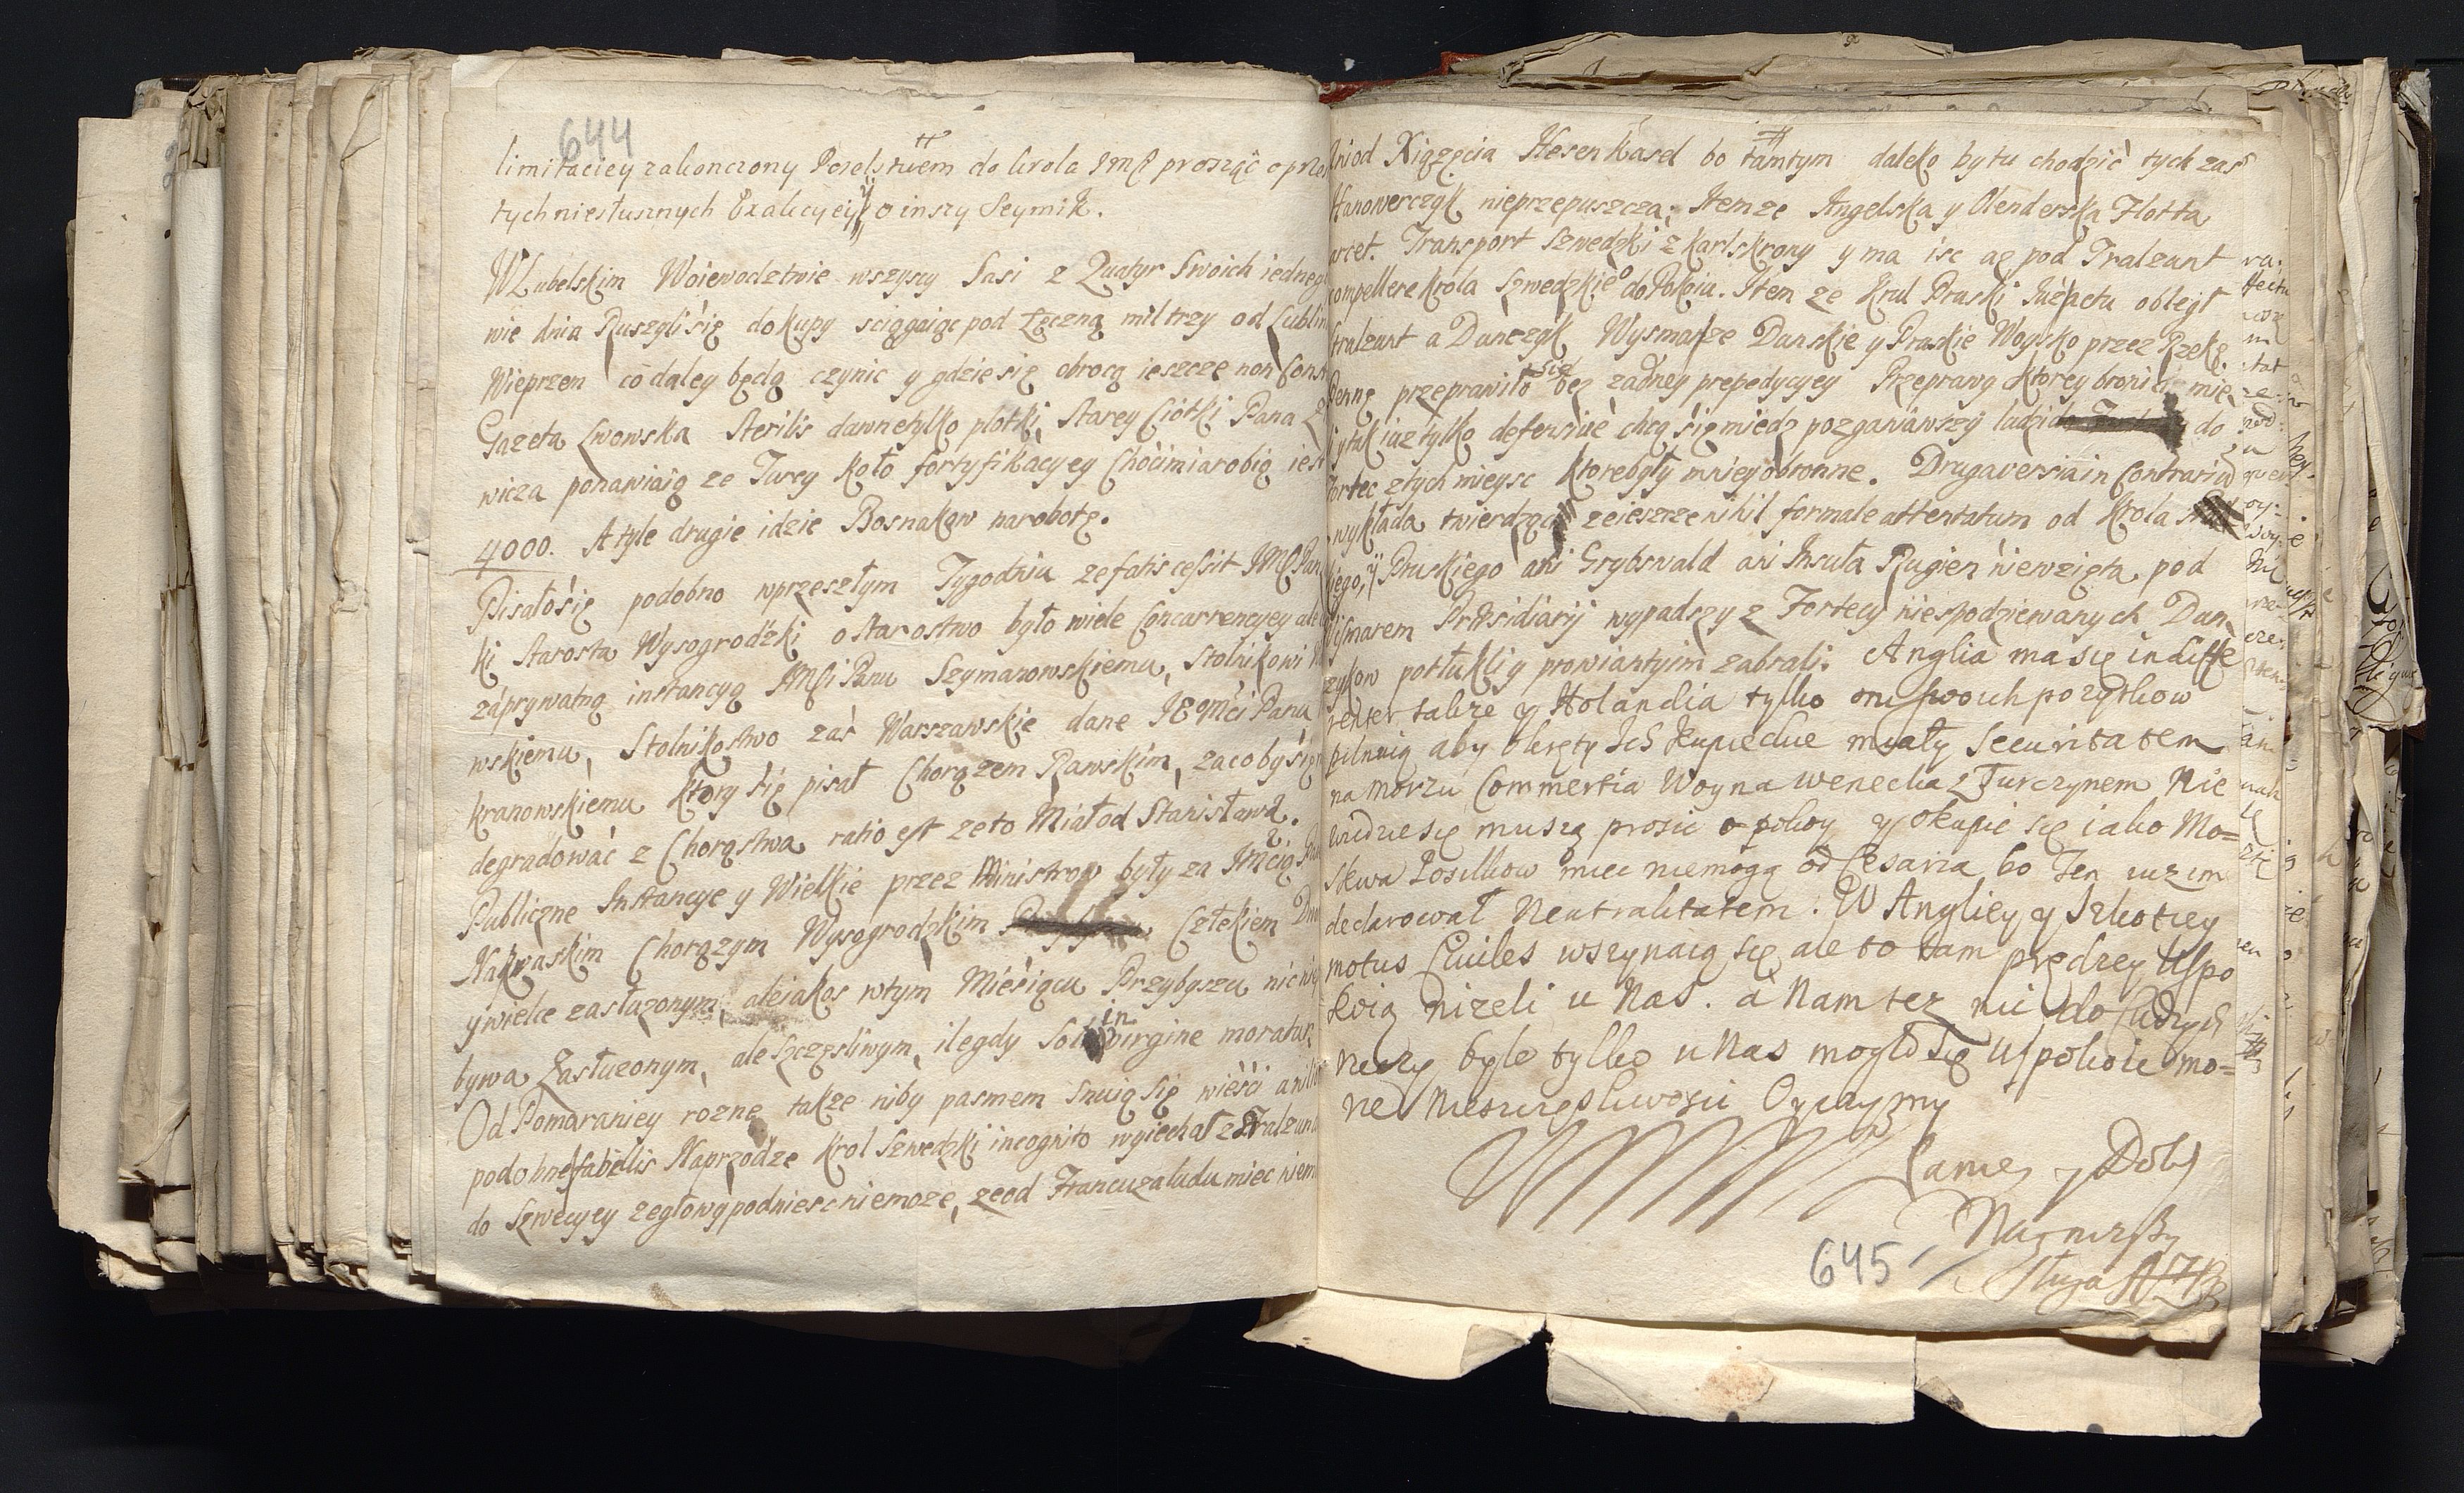 644
limitaciey zakonczony Poselstwem do Krola JMC prosząc o prze
tych niesłusznych Exakcyey o inszy Seymik.
W Lubelskim Woiewodztwie wszyscy Sasi z Quatyr Swoich iedneg
nie dnia Ruszyli się do kupy sciągaiąc pod Łęczną mil trzy od Lublin
Wieprzem co daley będą czynic y gdzie się obrocą ieszcze non Cons
Gazeta Lwowska sterilis dawne tylko plotki, Starey Ciotki Pana
wicza ponawiaią ze Turcy koło fortyfikacyey Chocimia robią iest
4000. A tyle drugie idzie Bosnakow na robotę.
Pisało się podobno w przeszłym Tygodniu ze fatis cessit JMC Pan
ki Starosta Wysogrodzki o Starostwo było wiele Concurrencyey ale
za prywatną instancyą JMCi Panu Szymanowskiemu, Stolnikowi
wskiemu, Stolnikostwo zas Warszawskie dane JEMci Panu
kranowskiemu ktory się pisał Chorązem Rawskim, zaco by się
degradowac z Chorąstwa ratio est ze to Miał od Stanisława.
Publiczne Instancye y Wielkie przez Ministrow były za JMcią
Nakwaskim Chorązym Wysogrodzkim Człekiem
y wielce zasłuzonym, ale iakos w tym Miesiącu Przybyszu nic nie
bywa Zasłuzonym, ale Szczęsliwym, ilegdy Sol in virgine moratur.
Od Pomeraniey rozne, takze niby pasmem snuią się wiesci anili
podobne fabellis Naprzod ze Krol Szwedzki incognito wyiechał z Stralzun
do Szwecyey ze głowy podniesc niemoze, ze od Francuza ludu miec niem
ani od Xiązęcia Hesen Kasel bo tamtym daleko by tu chodzić tych zas
Hanowerczyk nieprzepuszcza; Item ze Angelska y Olenderska Flotta
arcet. Transport Szwedzki z Karlskrony y ma isc az pod Tralzunt
compellere Krola Szwedzkiego do Pokoiu. Item ze Krul Pruski Iuz actu obległ
Stralzunt a Dunczyk Wysmar ze Dunskie y Pruskie Woysko przez Rzekę
Penne przeprawiło się bez zadney prepedycyey Przeprawy ktorey bronic mie
tylko defensive chcą się miec pozganiawszy ludzi do
Fortec z tych mieysc ktore były mniey obronne. Druga versia in Contrariu
wykłada twierdząc ze ieszcze nihil formale attentatum od Krola
kiego, y Pruskiego ani Grybswald ani Insuła Rugien niewzięta, pod
Wismarem Præsidiarij wypadszy z Fortecy niespodziewanych Dun
czykow potłukli y prowianty im zabrali. Anglia ma się indiffe
renter takze y Holandia tylko oni swoich pozytkow
pilnuią aby Okręty Ich kupieckie miały Securitatem
na Morzu Commertia Woyna Wenecka z Turczynem Nie
wiedzie się muszą prosic o pokoy y okupic się iako Mo=
skwa Posilkow miec niemogą od Cesarza bo Ten iuz im
declarował Neutralitatem. W Angliey y Szkociey
motus Civiles wszynaią się ale to tam prędzey Uspo
koią nizeli u Nas. a Nam tez nic do Cudzych
rzeczy byle tylko u Nas mogło się Uspokoic mo=
ne Nieszczęsliwosci Oyczyzny
Sanie y Doby
Naynizszy
Sługa
645